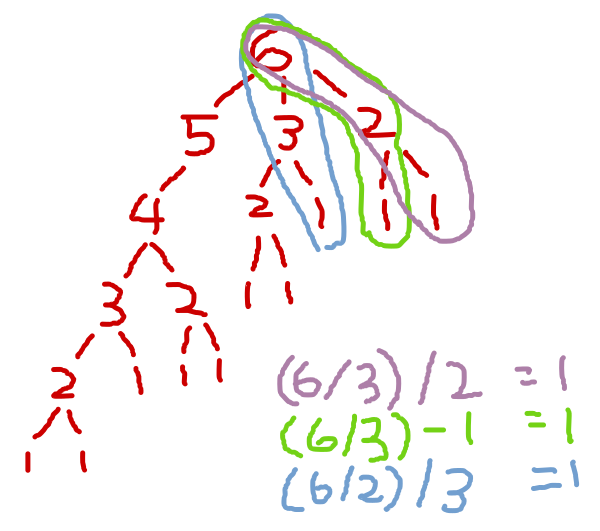 6
5 3 2
4 2 1 1 1
3 2 1 1
2 1 1 1
1 1
(6/3)/2 =1
(6/3)-1 =1
(6/2)/3 =1